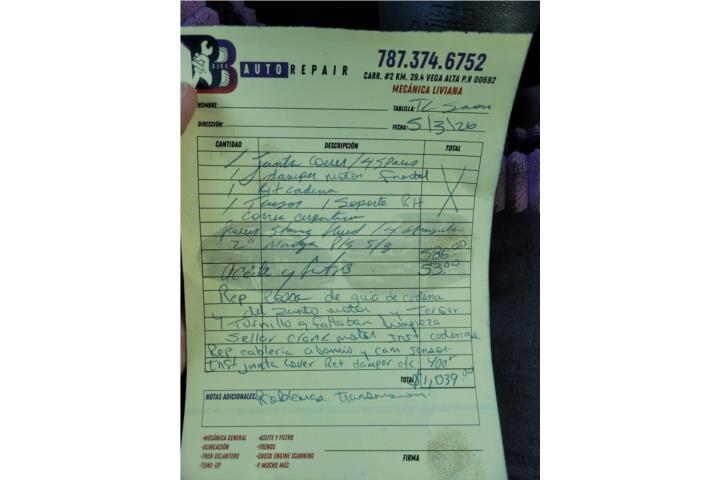 AUTO REPAIR
787.374.6752
CARR. #2 KM. 29.4 VEGA ALTA P.R 00692
MECÁNICA LIVIANA
NOMBRE:
TABLILLA: TL
DIRECCIÓN:
FECHA: 5/3/26
CANTIDAD DESCRIPCIÓN TOTAL
1 Junta Cover /
1 damper motor Frontal
1 Kit cadena
1 Tensor 1 Soporte RH
Correa
Power fluid / 4
2" P/S 5/8 586.00
Aceite y filtro 53.00
Rep de guia de cadena
del motor y Tensor
y Tornillo q faltaban Limpieza
Sellar crank motor Inst cadenas
Rep cableria abanico y cam sensor.
Inst junta cover Ret damper etc. 400
TOTAL $1,039.00
NOTAS ADICIONALES: Transmision.
-MECÁNICA GENERAL -ACEITE Y FILTRO
-ALINEACIÓN -FRENOS
-TREN DELANTERO -CHECK ENGINE SCANNING
-TUNE-UP -Y MUCHO MÁS
FIRMA